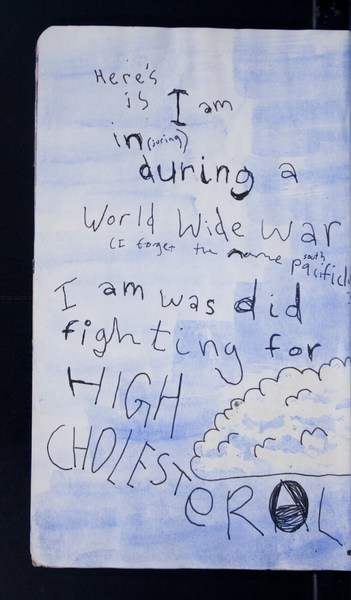 Here's
is I am
in (during)
during a
World Wide War
(I forget the name south pacific
I am was did
fighting for
HIGH
CHOLEST
eRAL